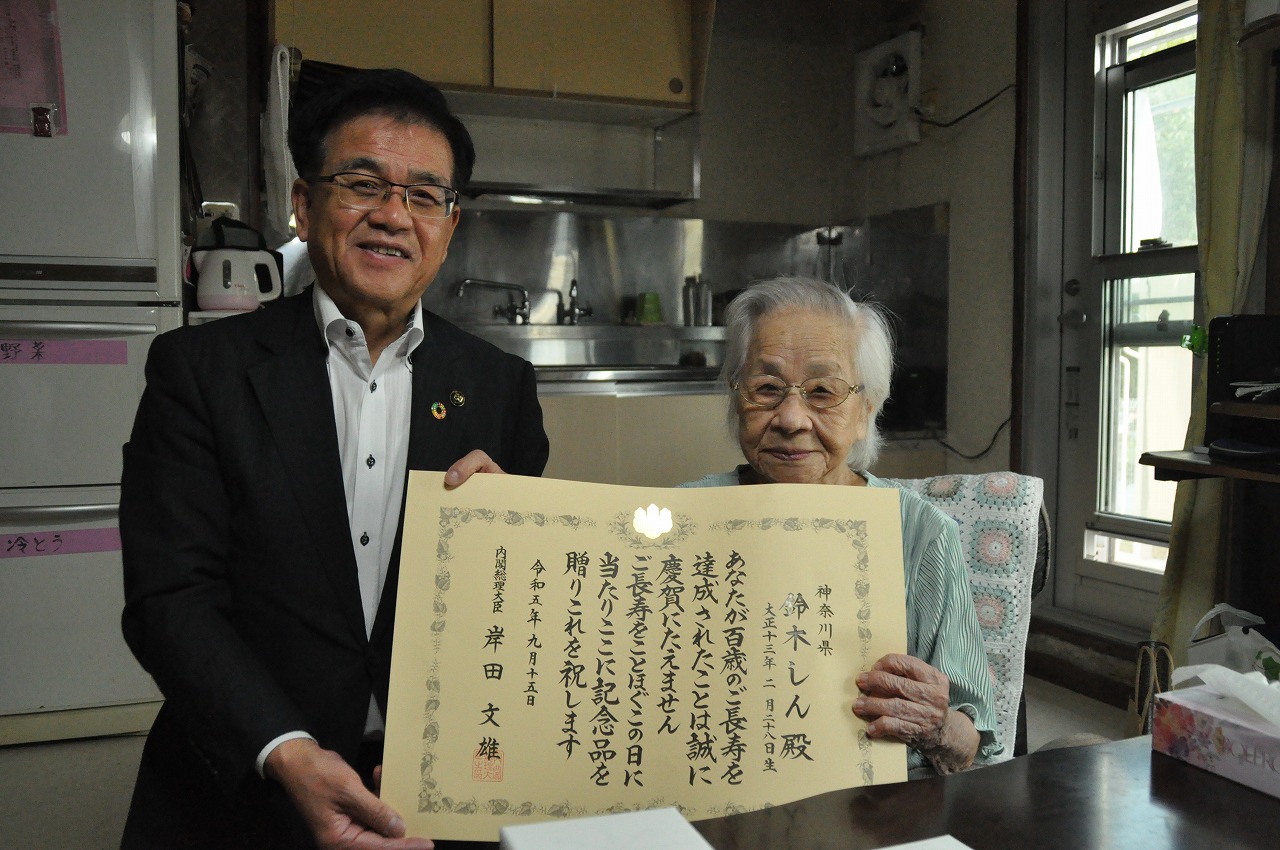 野菜
冷とう
神奈川県
鈴木しん殿
大正十三年二月二十八日生
あなたが百歳のご長寿を
達成されたことは誠に
慶賀にたえません
ご長寿をことほぐこの日に
当たりここに記念品を
贈りこれを祝します
令和五年九月十五日
内閣総理大臣 岸田文雄